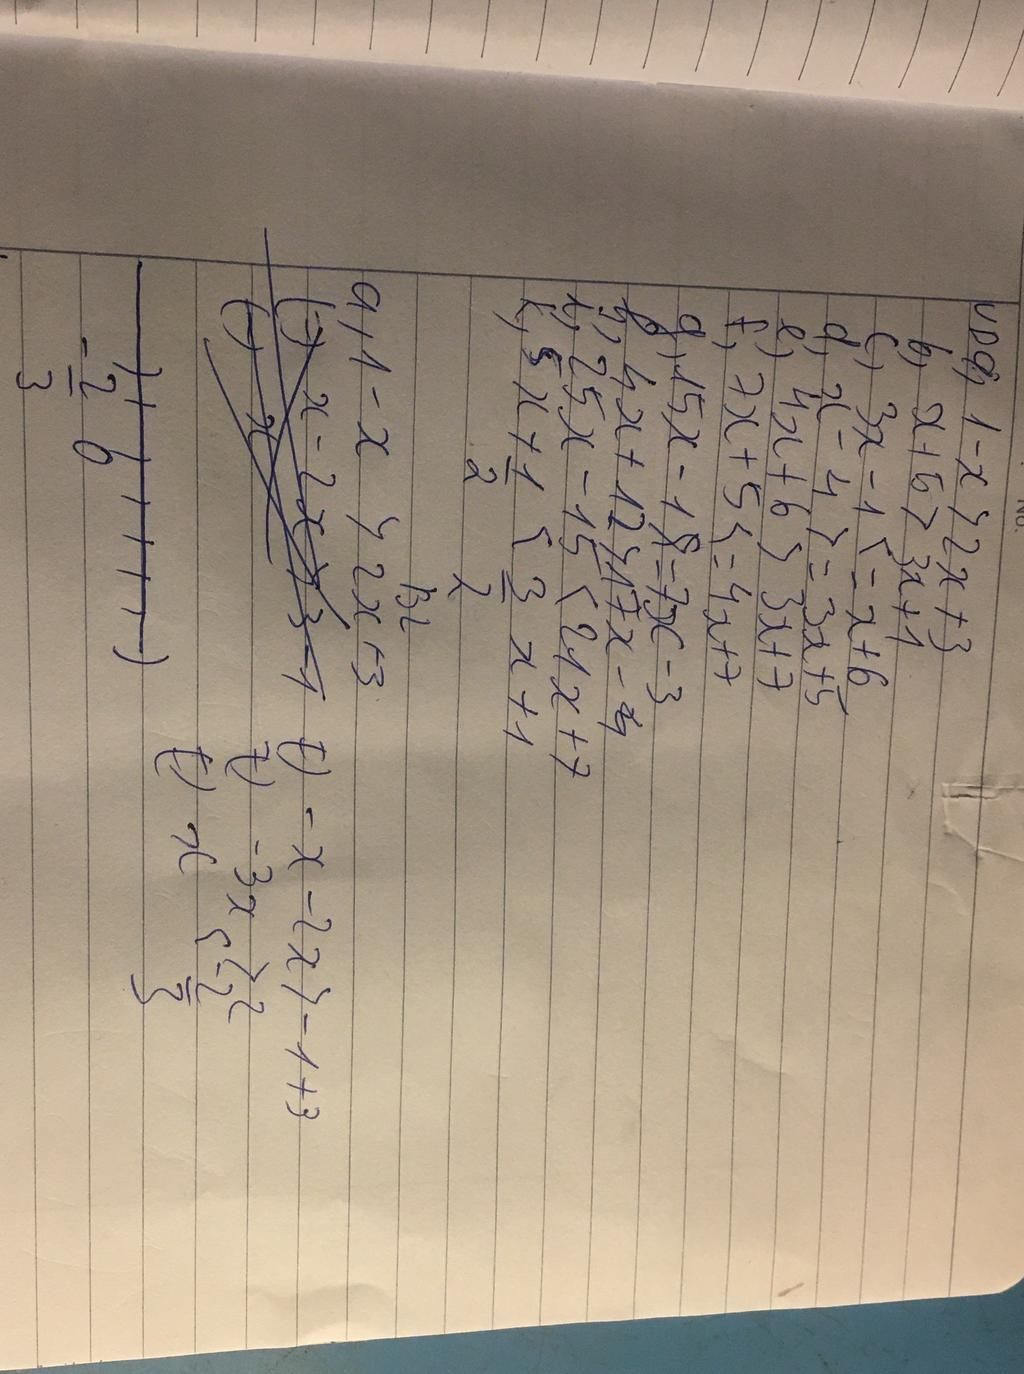 No.
VD a, 1-x > 2x+3
b, x+6 > 3x+1
c, 3x-1 <= x+6
d, x-4 >= 3x+5
e, 4x+6 > 3x+7
f, 7x+5 <= 4x+7
g, 15x-18 = 7x-3
4x+12 > 17x-4
h, 25x-15 < 21x+7
k, 5x+1/2 < 3/2 x+1
bL
a, 1-x > 2x+3
(-) x-2x > 3-1 (-) -x-2x > -1+3
(-) x (-) -3x > 2
(-) x < -2/3
-2/3 0